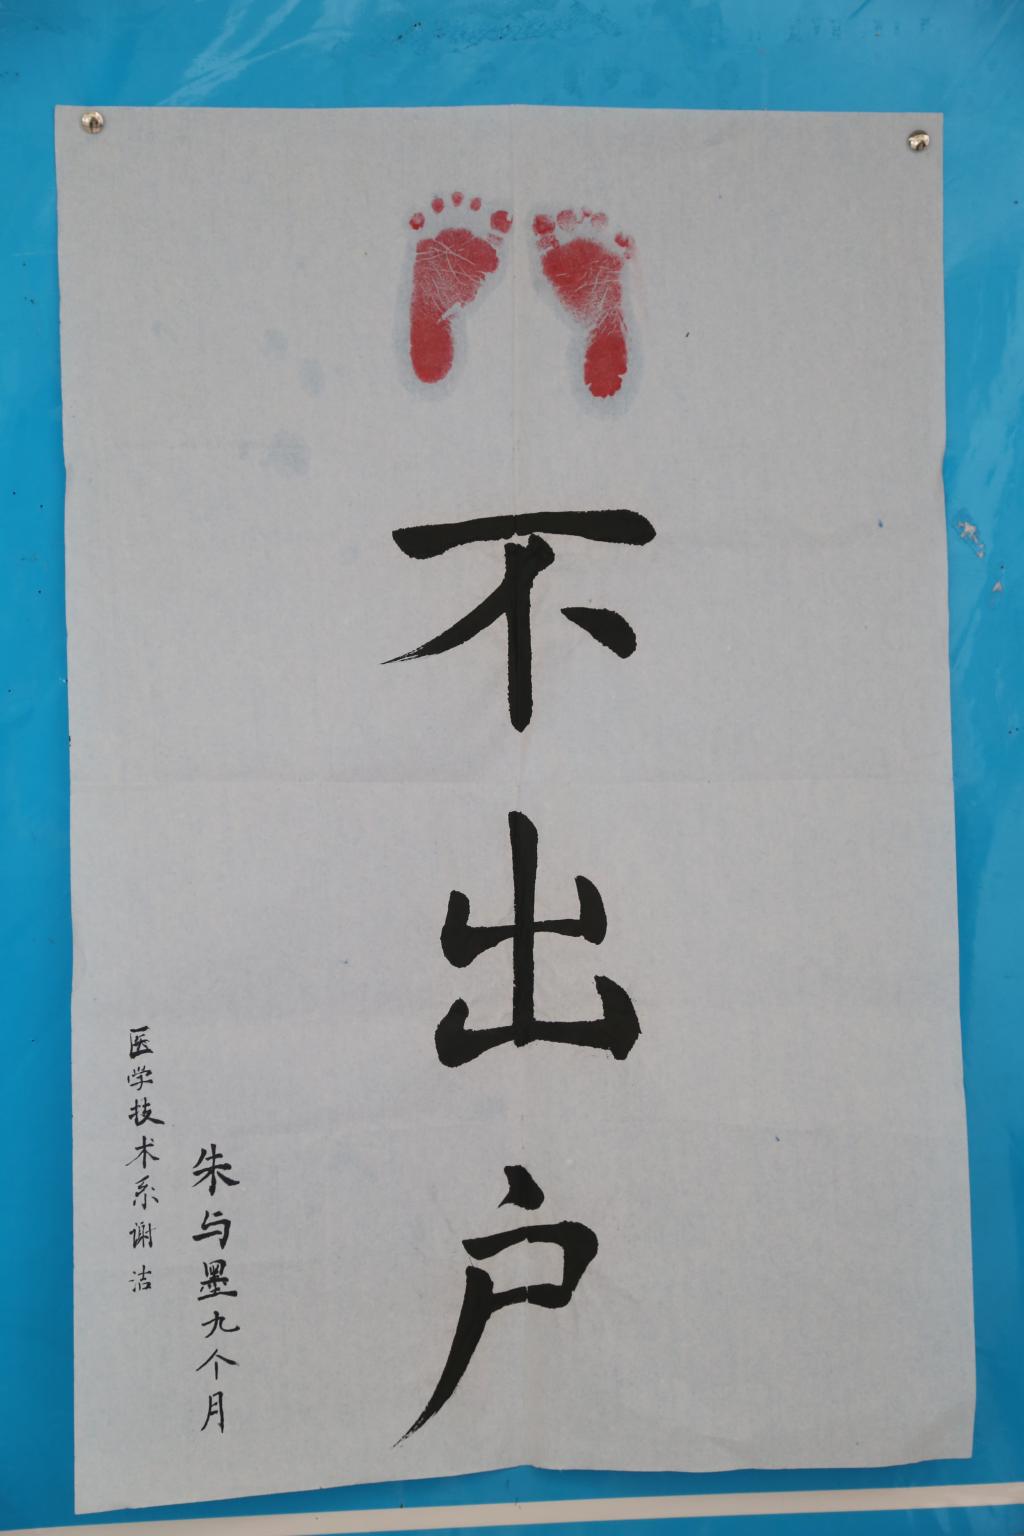 不出户
朱与墨九个月
医学技术系谢洁